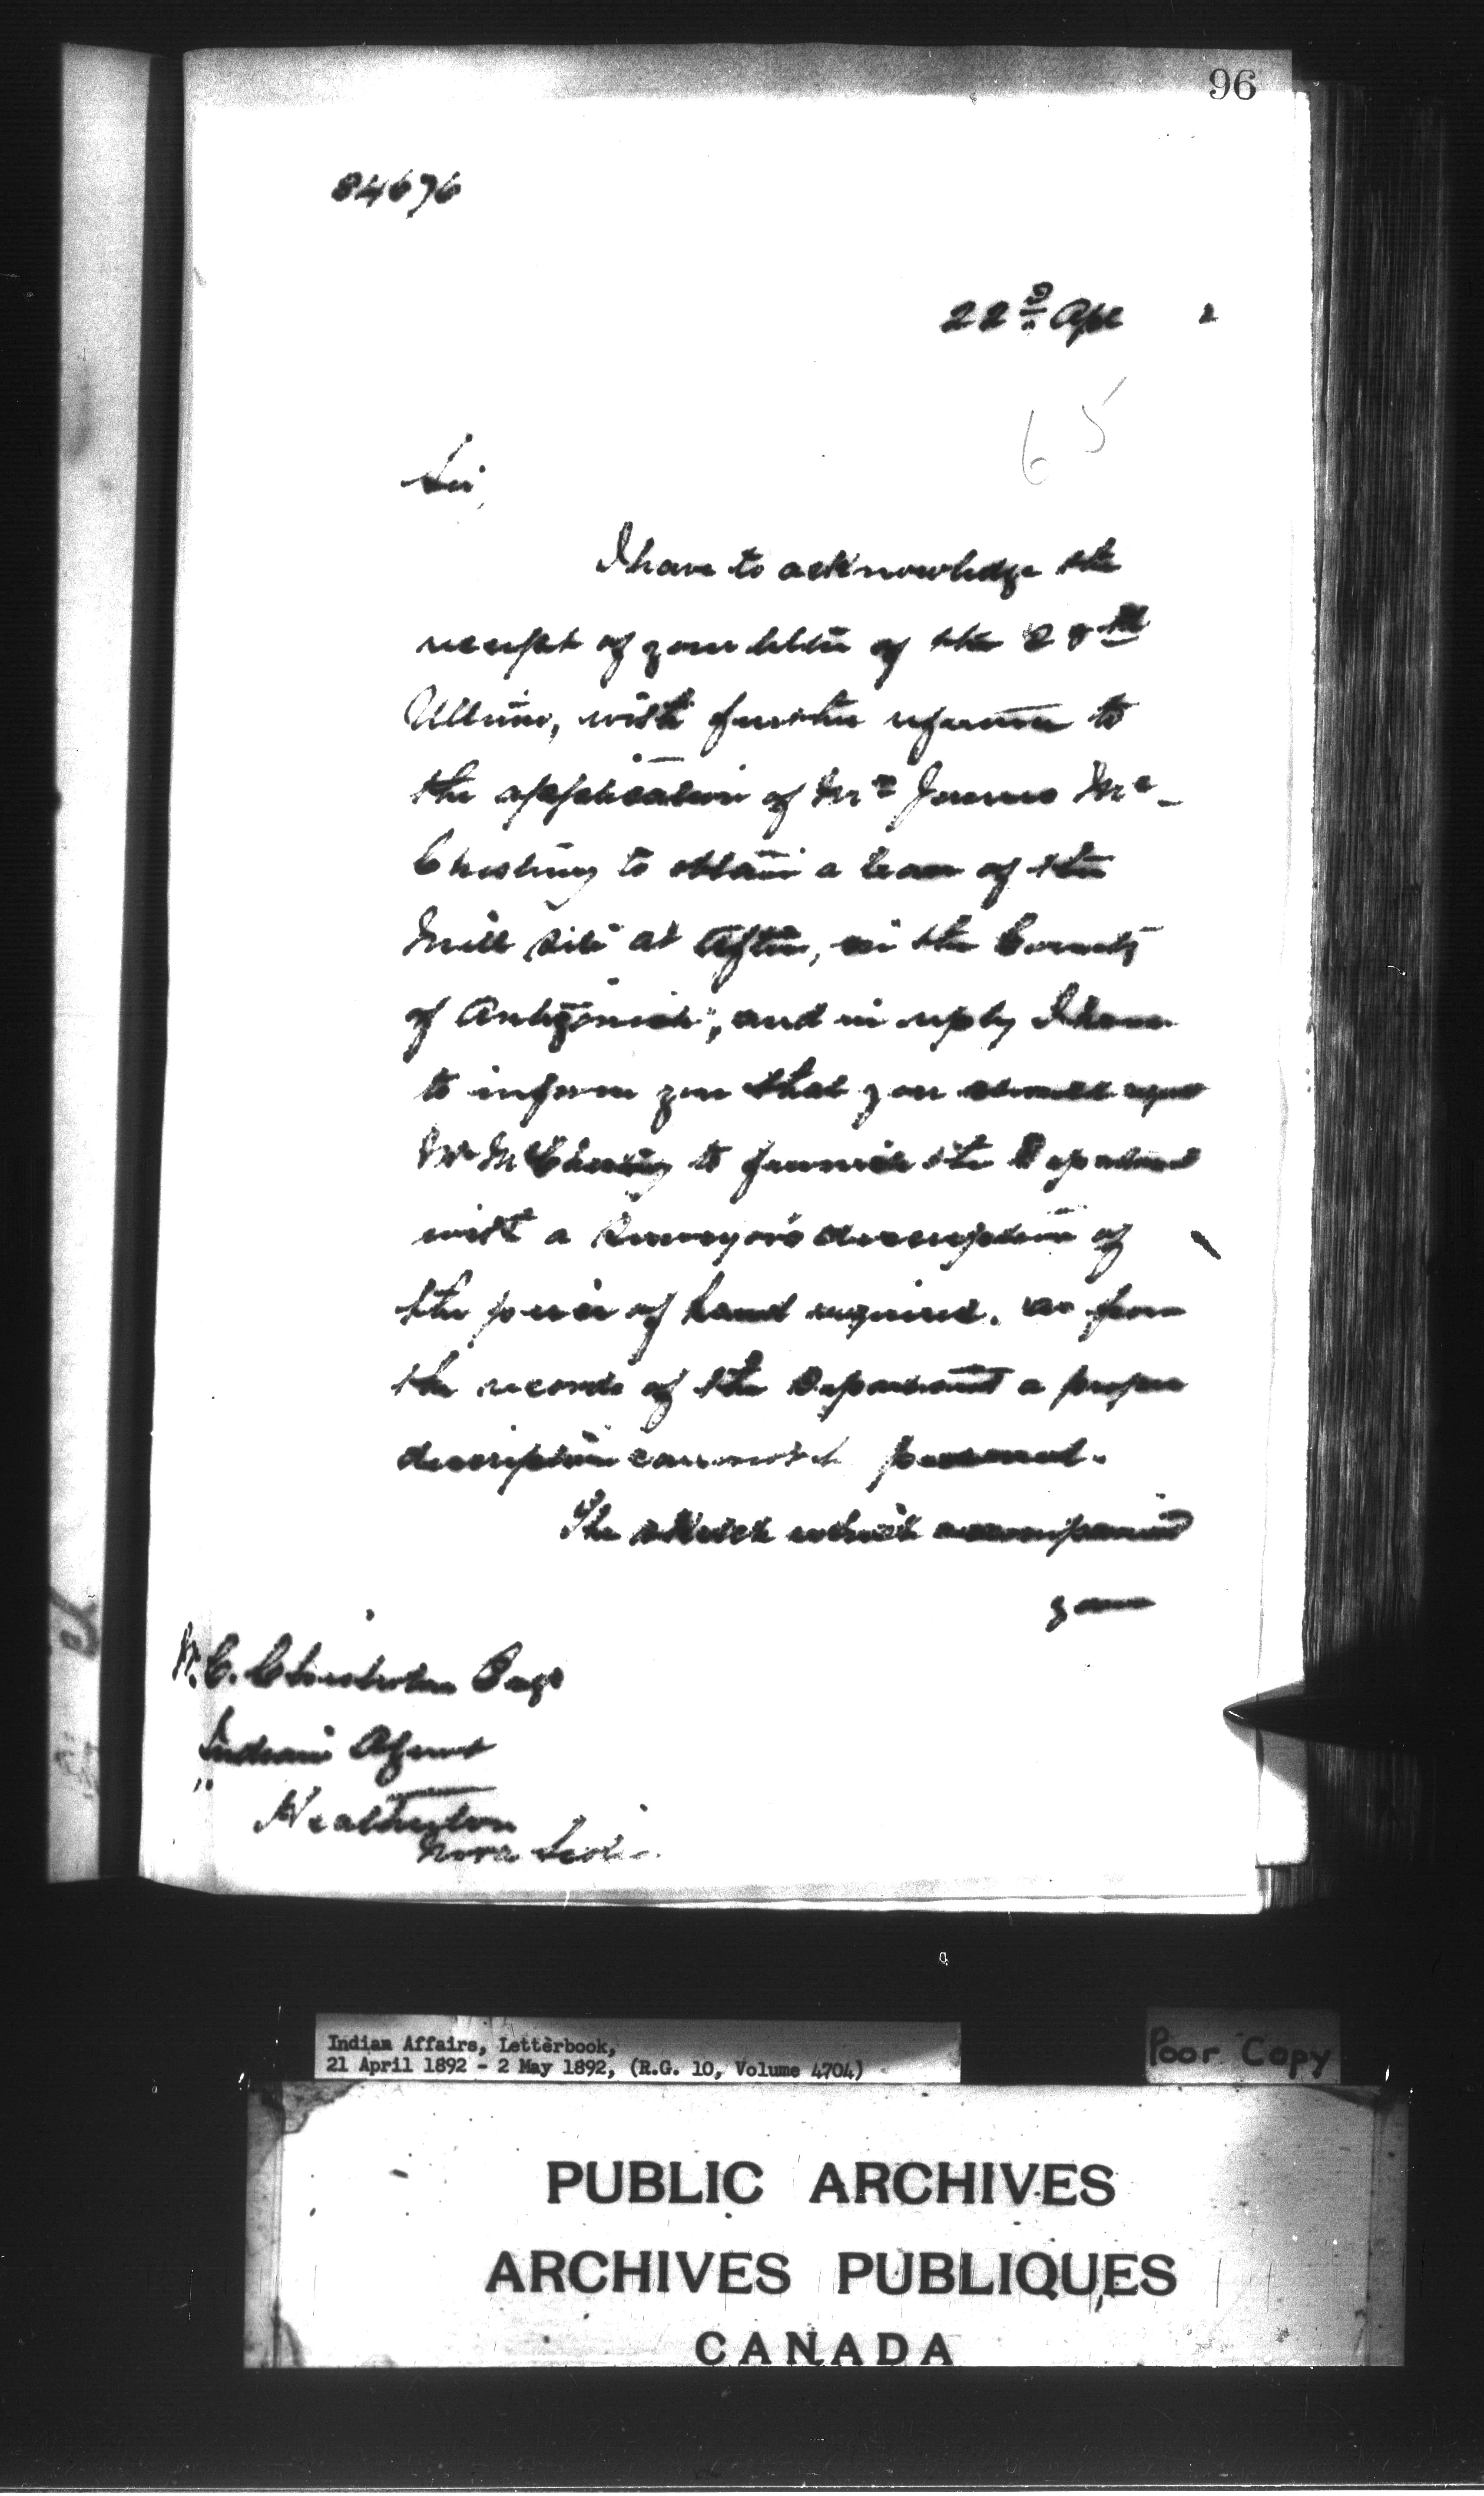 96
84676
22nd Apl 2
65
Sir,
I have to acknowledge the
receipt of your letter of the 28th
Ultimo, with further reference to
the application of Mr James Mc-
Chesney to obtain a lease of the
Mill site at Afton, in the County
of Antigonish; and in reply I have
to inform you that you should
Mr McChesney to furnish the Department
with a Surveyor's description of
the piece of land required. as from
the records of the Department a proper
description cannot be prepared.
The sketch which accompanied
your
W. C. Chisholm Esqr
Indian Agent
Heatherton
Nova Scotia.
Indian Affairs, Letterbook,
21 April 1892 - 2 May 1892, (R.G. 10, Volume 4704)
Poor Copy
PUBLIC ARCHIVES
ARCHIVES PUBLIQUES
CANADA